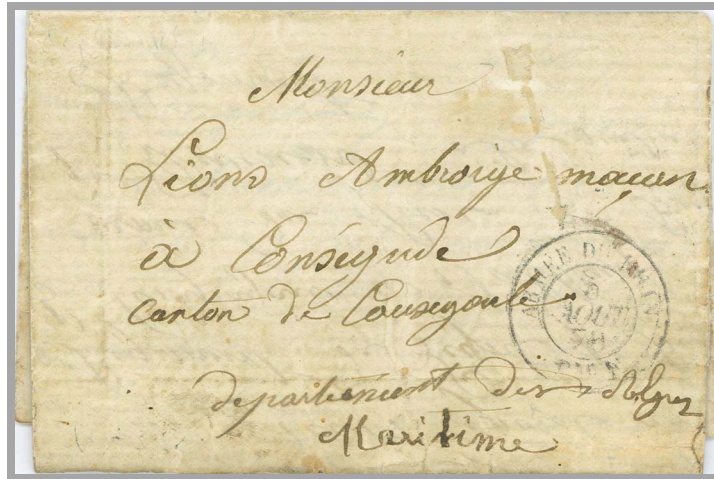 Monsieur
Lions Ambroise maçon
à Conségude
Canton de Coursegoule
departement des Alpes
Maritime
ARMÉE DU RHIN
5
AOUT
70